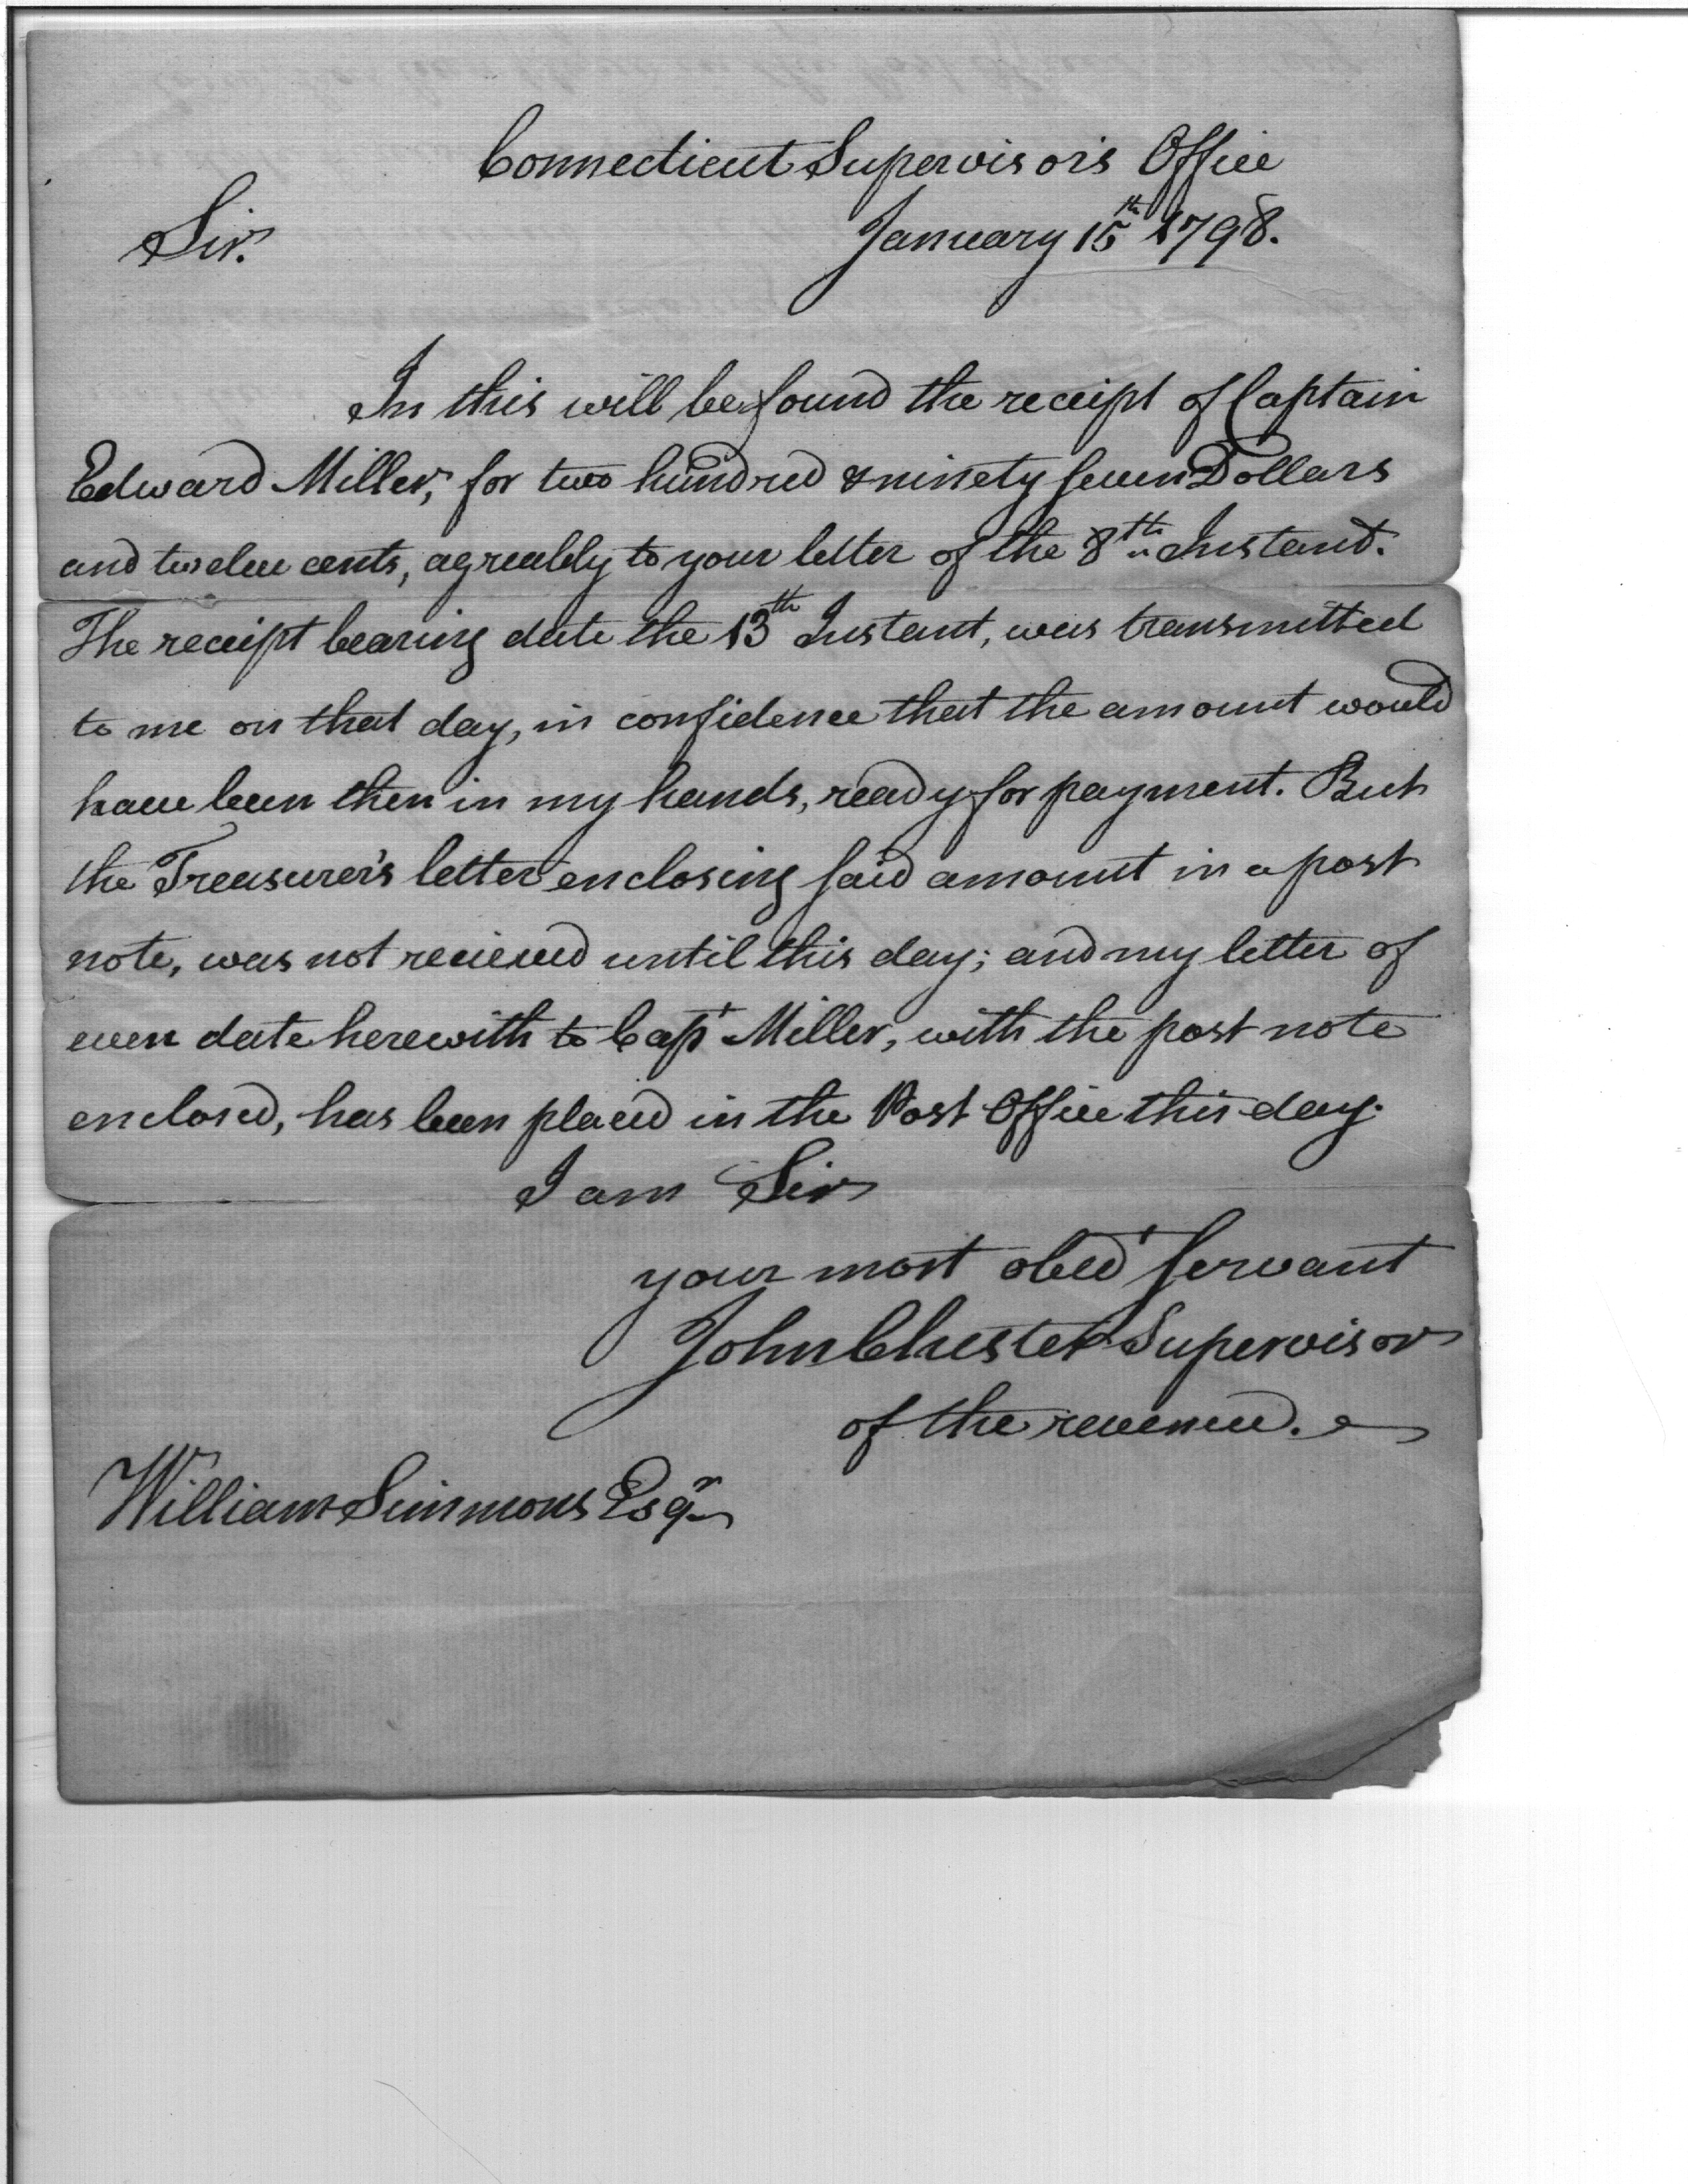 Connecticut Supervisor's Office
Sir.
January 15th 1798.
In this will be found the receipt of Captain
Edward Miller, for two hundred & ninety seven Dollars
and twelve cents, agreably to your letter of the 8th Instant.
The receipt bearing date the 13th Instant, was transmitted
to me on that day, in confidence that the amount would
have been then in my hands, ready for payment. But
the Treasurer's letter enclosing said amount in a post
note, was not recieved until this day; and my letter of
even date herewith to Capt Miller, with the post note
enclosed, has been placed in the Post Office this day.
I am Sir
your most obedt servant
John Chester Supervisor
of the revenue.
William Simmons Esqr